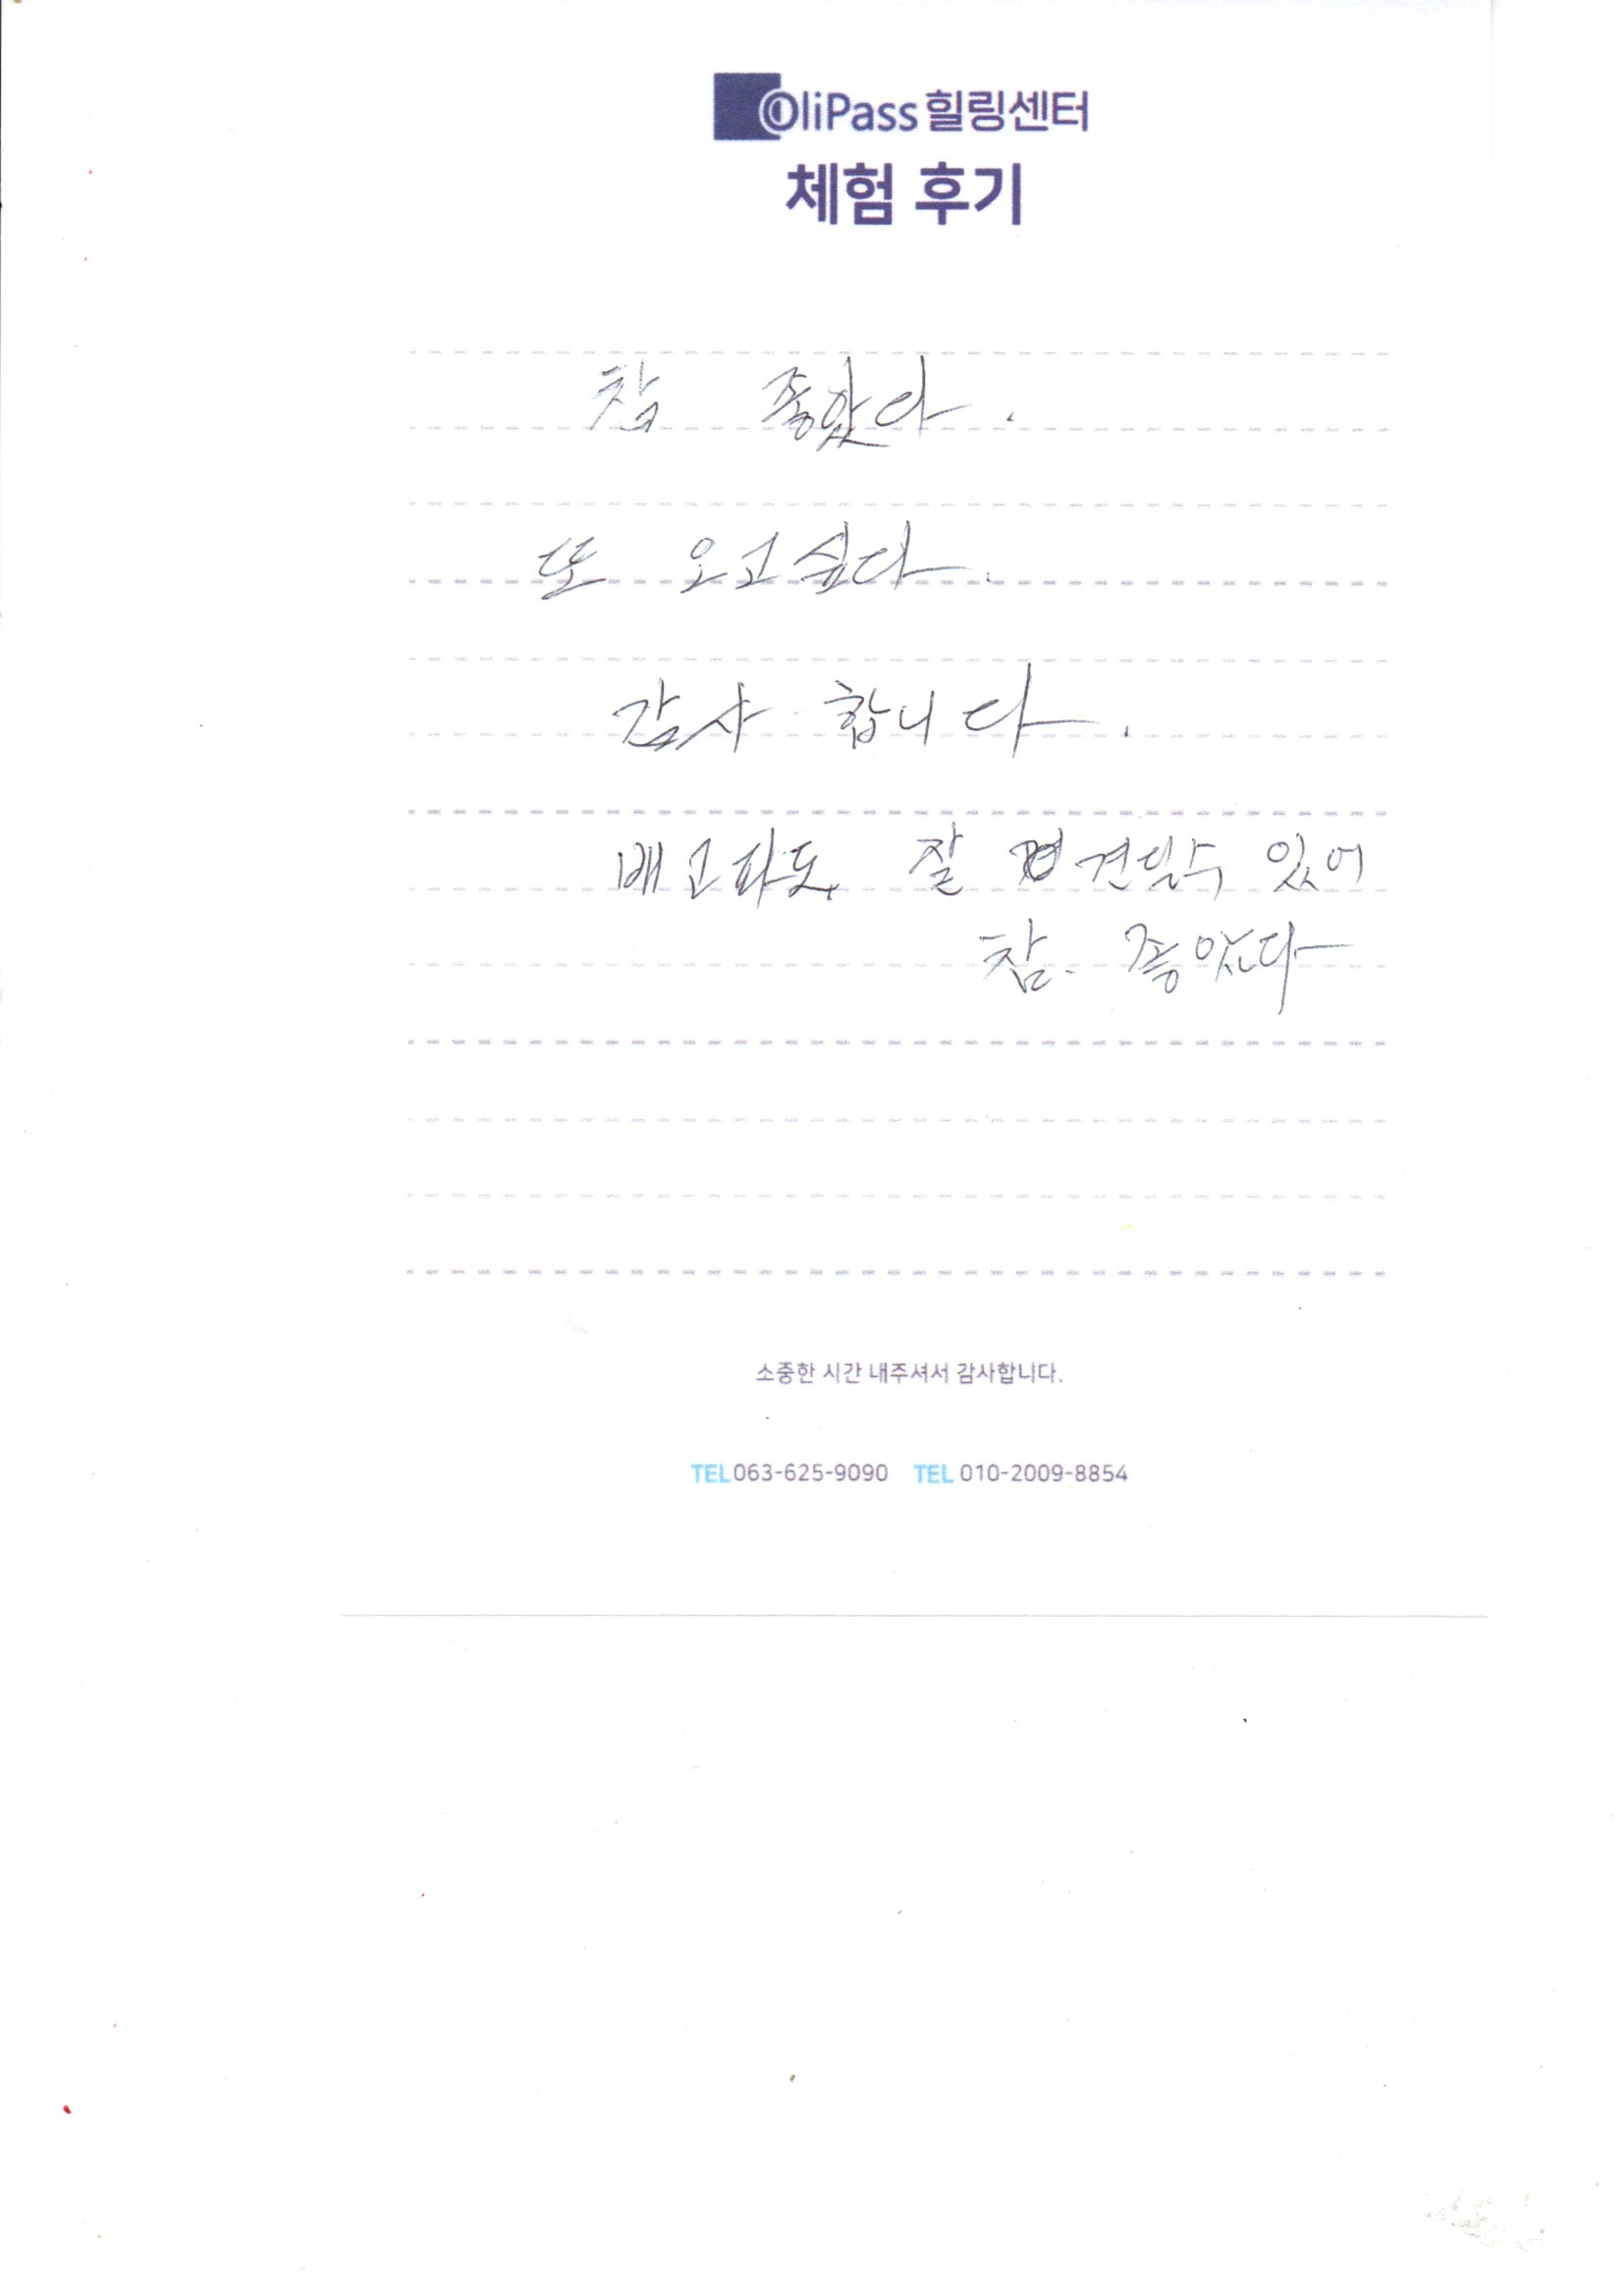 OliPass 힐링센터
체험 후기
참 좋았다.
또 오고싶다.
감사 합니다.
배고파도 잘 견딜수 있어
참. 좋았다
소중한 시간 내주셔서 감사합니다.
TEL 063-625-9090 TEL 010-2009-8854